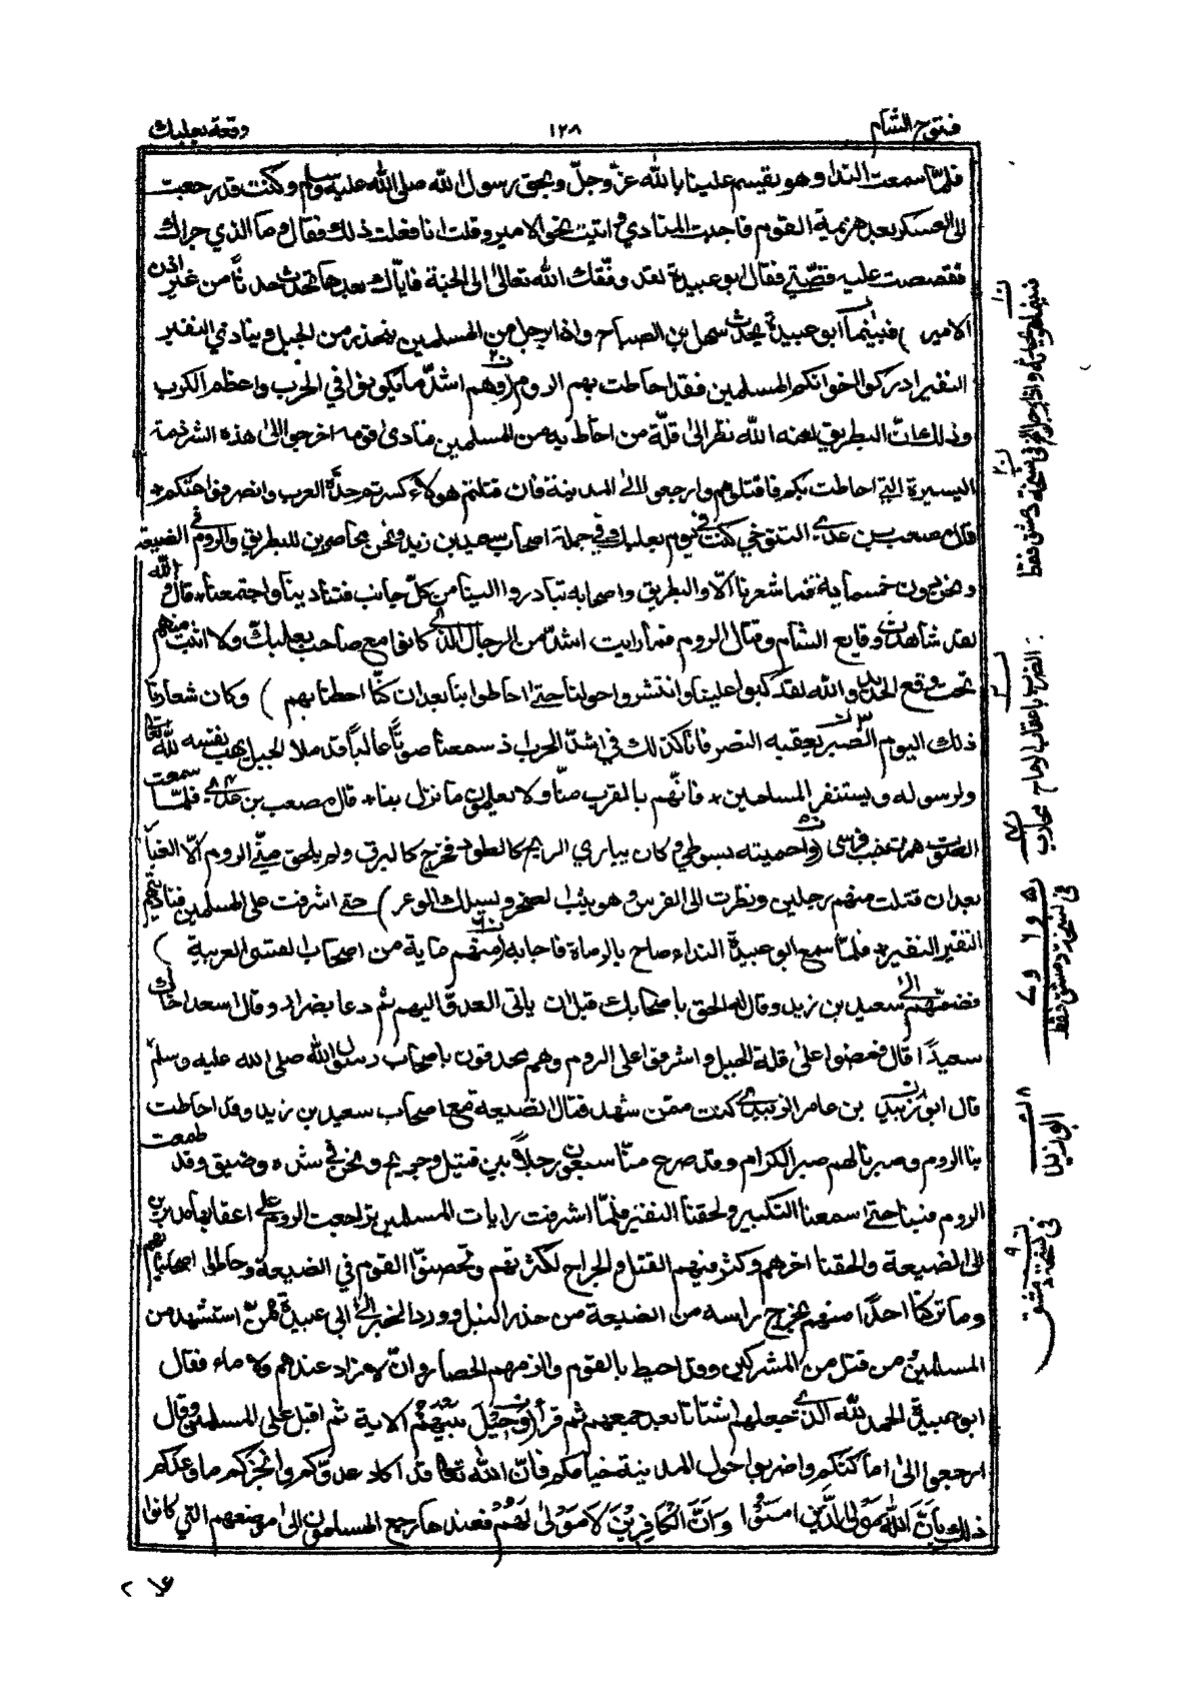 فتوح الشام ١٢٨ وقعة بعلبك
فلمّا سمعت النداء وهو يقسم علينا بالله عزّ وجلّ وبحق رسول الله صلى الله عليه وسلم وكنت قد رجعت
الى العسكر بعد هزيمة القوم فاجبت المنادي واتيت نحو الامير وقلت انا فعلت ذلك فقال وما الذي جراك
فقصصت عليه قصّتي فقال ابو عبيدة لقد وفّقك الله تعالى الى الجنة فايّاك بعدها تحدث حدثاً من غير اذن
الامير ) فبينما ابو عبيدة يحدث سهل بن الصباح واذا برجل من المسلمين ينحدر من الجبل وينادي النفير
النفير ادركوا اخوانكم المسلمين فقد احاطت بهم الروم (وهم اشدّ ما يكونوا في الحرب واعظم الكرب
وذلك ان البطريق لعنه الله نظر الى قلّة من احاط به من المسلمين فنادى قومه اخرجوا الى هذه الشرذمة
اليسيرة التي احاطت بكم فاقتلوهم وارجعوا الى المدينة فان قتلتم هولاء كسرتم حدّة العرب وانصرفوا عنكم *
قال مصعب بن عدي التنوخي كنت في يوم بعلبك وفي جملة اصحاب سعيد بن زيد ونحن محاصرين للبطريق والروم في الضيعة
ونحن دون خمسماية فما شعرنا الّا والبطريق واصحابه تبادروا الينا من كلّ جانب فتنادينا واجتمعنا * قال والله
لقد شاهدت وقايع الشام وقتال الروم فما رايت اشدّ من الرجال الذي كانوا مع صاحب بعلبكّ ولا اثبت منهم
تحت وقع الحديد والله لقد كبوا علينا وانتشروا حولنا حتى احاطوا بنا بعد ان كنّا احطنا بهم ) وكان شعارنا
ذلك اليوم الصبر يعقبه النصر فانا كذلك في اشدّ الحرب اذ سمعنا صوتاً عالياً قد ملا الجبل يهب نفسه لله تعالى
ولرسوله ويستنفر المسلمين * فانّهم بالقرب منّا ولا يعلمون ما نزل بنا * قال مصعب بن عدي فلمّا سمعت
الصوت همرت جنب فرسى (واحميته بسوطي وكان يباري الريح كالطود فخرج كالبرق ولم يلحق منّي الروم الّا الغبار
بعد ان قتلت منهم رجلين ونظرت الى الفرس وهو يثب لصخر ويسلك الوعر ) حتى اشرفت على المسلمين فناديتهم
النفير النفير * فلمّا سمع ابو عبيدة النداء صاح بالرماة فاجابه (منهم ماية من اصحاب القسى العربية )
فضمّهم الى سعيد بن زيد وقال له الحق باصحابك قبل ان ياتى العدوّ اليهم ثم دعا بضرار وقال اسعد اخاك
سعيداً قال فمضوا على قلة الجبل واشرفوا على الروم وهم محدقون باصحاب رسول الله صلى الله عليه وسلّم
قال ابو زبيد بن عامر الزبيدي كنت ممّن شهد قتال الضيعة مع اصحاب سعيد بن زيد وقد احاطت
بنا الروم وصبرنا لهم صبر الكرام وقد صرع منّا سبعون رجلاً بين قتيل وجريح ونحن في شدة وضيق وقد طمعت
الروم فينا حتى اسمعنا التكبير ولحقنا النفير فلمّا اشرفت رايات المسلمين تراجعت الروم على اعقابها هاربين
الى الضيعة ولحقنا اخرهم وكثر فيهم القتل والجراح لكثرتهم وتحصنوا القوم في الضيعة وحاط اصحابنا بهم
وما تركنا احداً منهم يخرج راسه من الضيعة من حذر النبل وورد الخبر الى ابي عبيدة بمن استشهد من
المسلمين ومن قتل من المشركين وقد احيط بالقوم والزمهم الحصار وانّ لا زاد عندهم ولا ماء فقال
ابو عبيدة الحمد لله الذي جعلهم اشتاتا بعد جمعهم ثم قرأ (وَحِيْلَ بَيْنَهُمْ الاية ثم اقبل على المسلمين وقال
ارجعوا الى اماكنكم واضربوا حول المدينة خيامكم فانّ الله تعالى قد اكاد عدوّكم وانجزكم ما وعدكم
ذلك بِاَنَّ اللهَ مَوْلَى الَّذِيْنَ امَنُوْا وَاَنَّ الْكَافِرِيْنَ لَا مَوْلىٰ لَهُمْ فعندها رجع المسلمون الى موضعهم التي كانوا
الضرب باعقاب الرماح
٧ محارب
٥ و ٦ و ٧ في نسخة دمشق فقط
٨ ابو زيد
٩ في نسخة دمشق